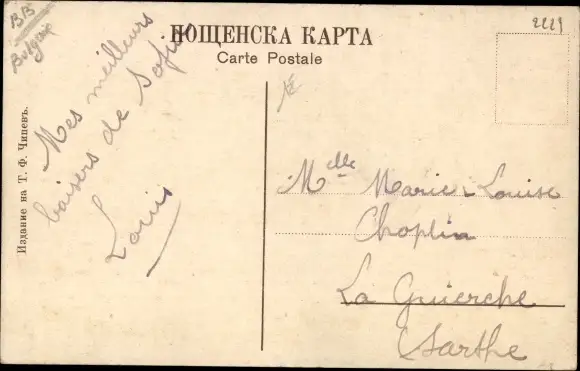 BB
Bulgarie
2229
ПОЩЕНСКА КАРТА
Carte Postale
Издание на Т. Ф. Чипевъ.
Mes meilleurs
baisers de Sofia
Louis
1E
Melle Marie-Louise
Choplin
La Guierche
Sarthe